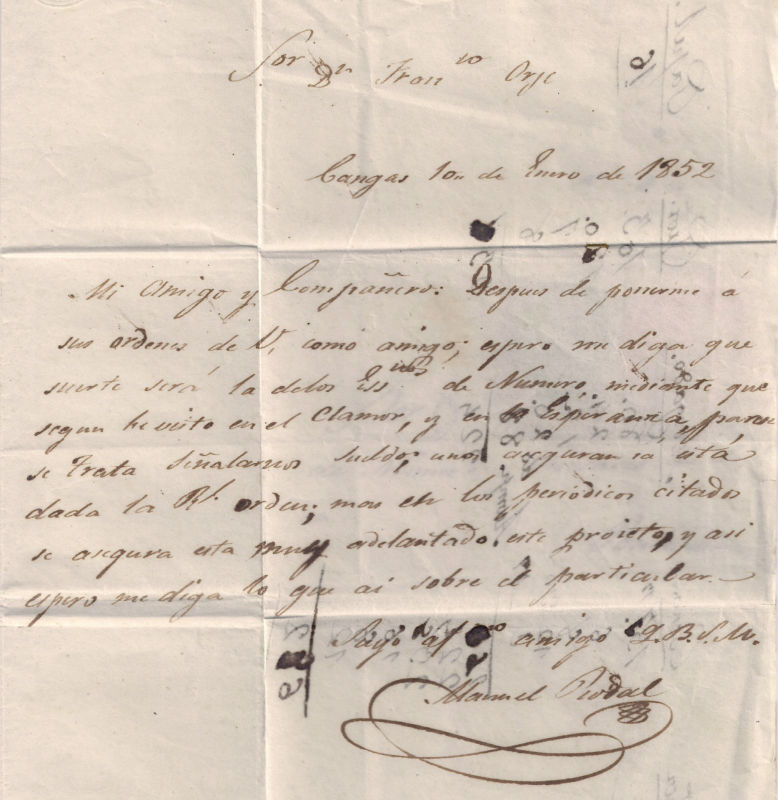 Sor Dn Franco Orge
Cangas 10,, de Enero de 1852
Mi Amigo y Compañero: Despues de ponerme á
sus ordenes de V. como amigo; espero me diga que
suerte será la delos Essnos de Numero, mediante que
segun he visto en el Clamor, y en la Esperanza, parece
se trata señalarnos sueldo; unos aseguran ia está
dada la Rl. orden; mas en los periódicos citados
se asegura esta muy adelantado este projeto, y asi
espero me diga lo que ai sobre el particular.
Suyo afmo amigo Q.B.S.M.
Manuel Rodal